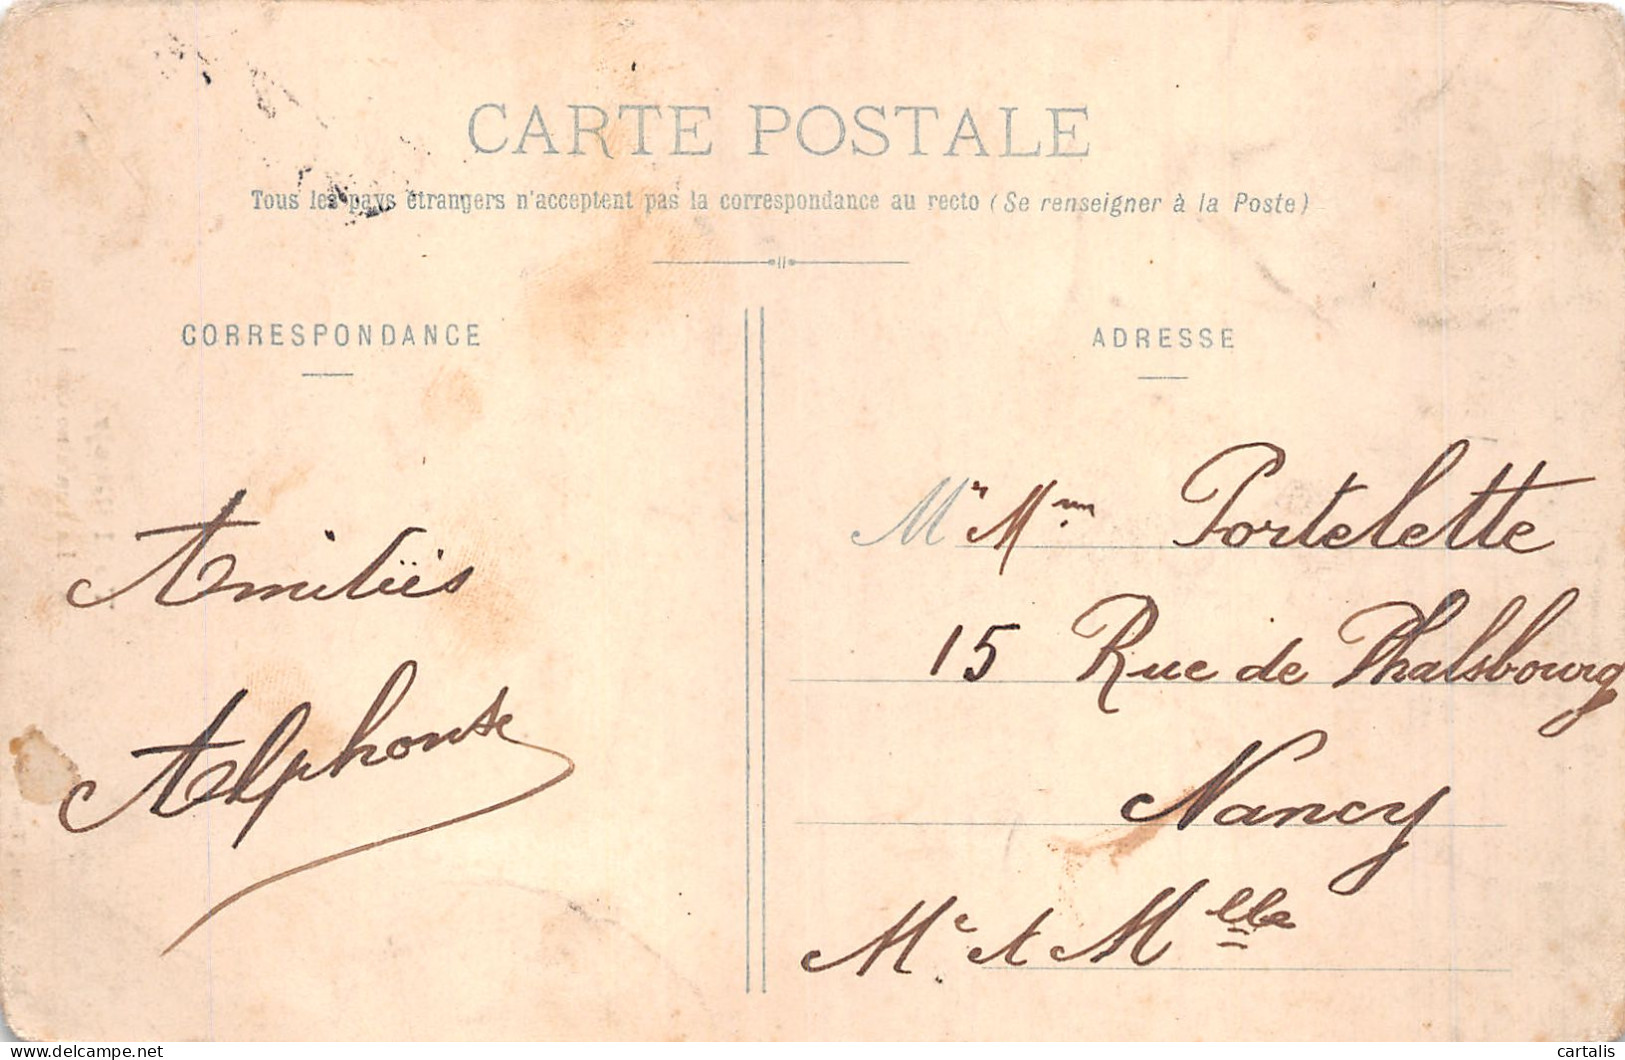 CARTE POSTALE
Tous les pays étrangers n'acceptent pas la correspondance au recto (Se renseigner à la Poste)
CORRESPONDANCE
Amitiés
Alphonse
ADRESSE
Mr Mme Portelette
15 Rue de Phalsbourg
Nancy
Mr et Mlle
delcampe.net
cartalis